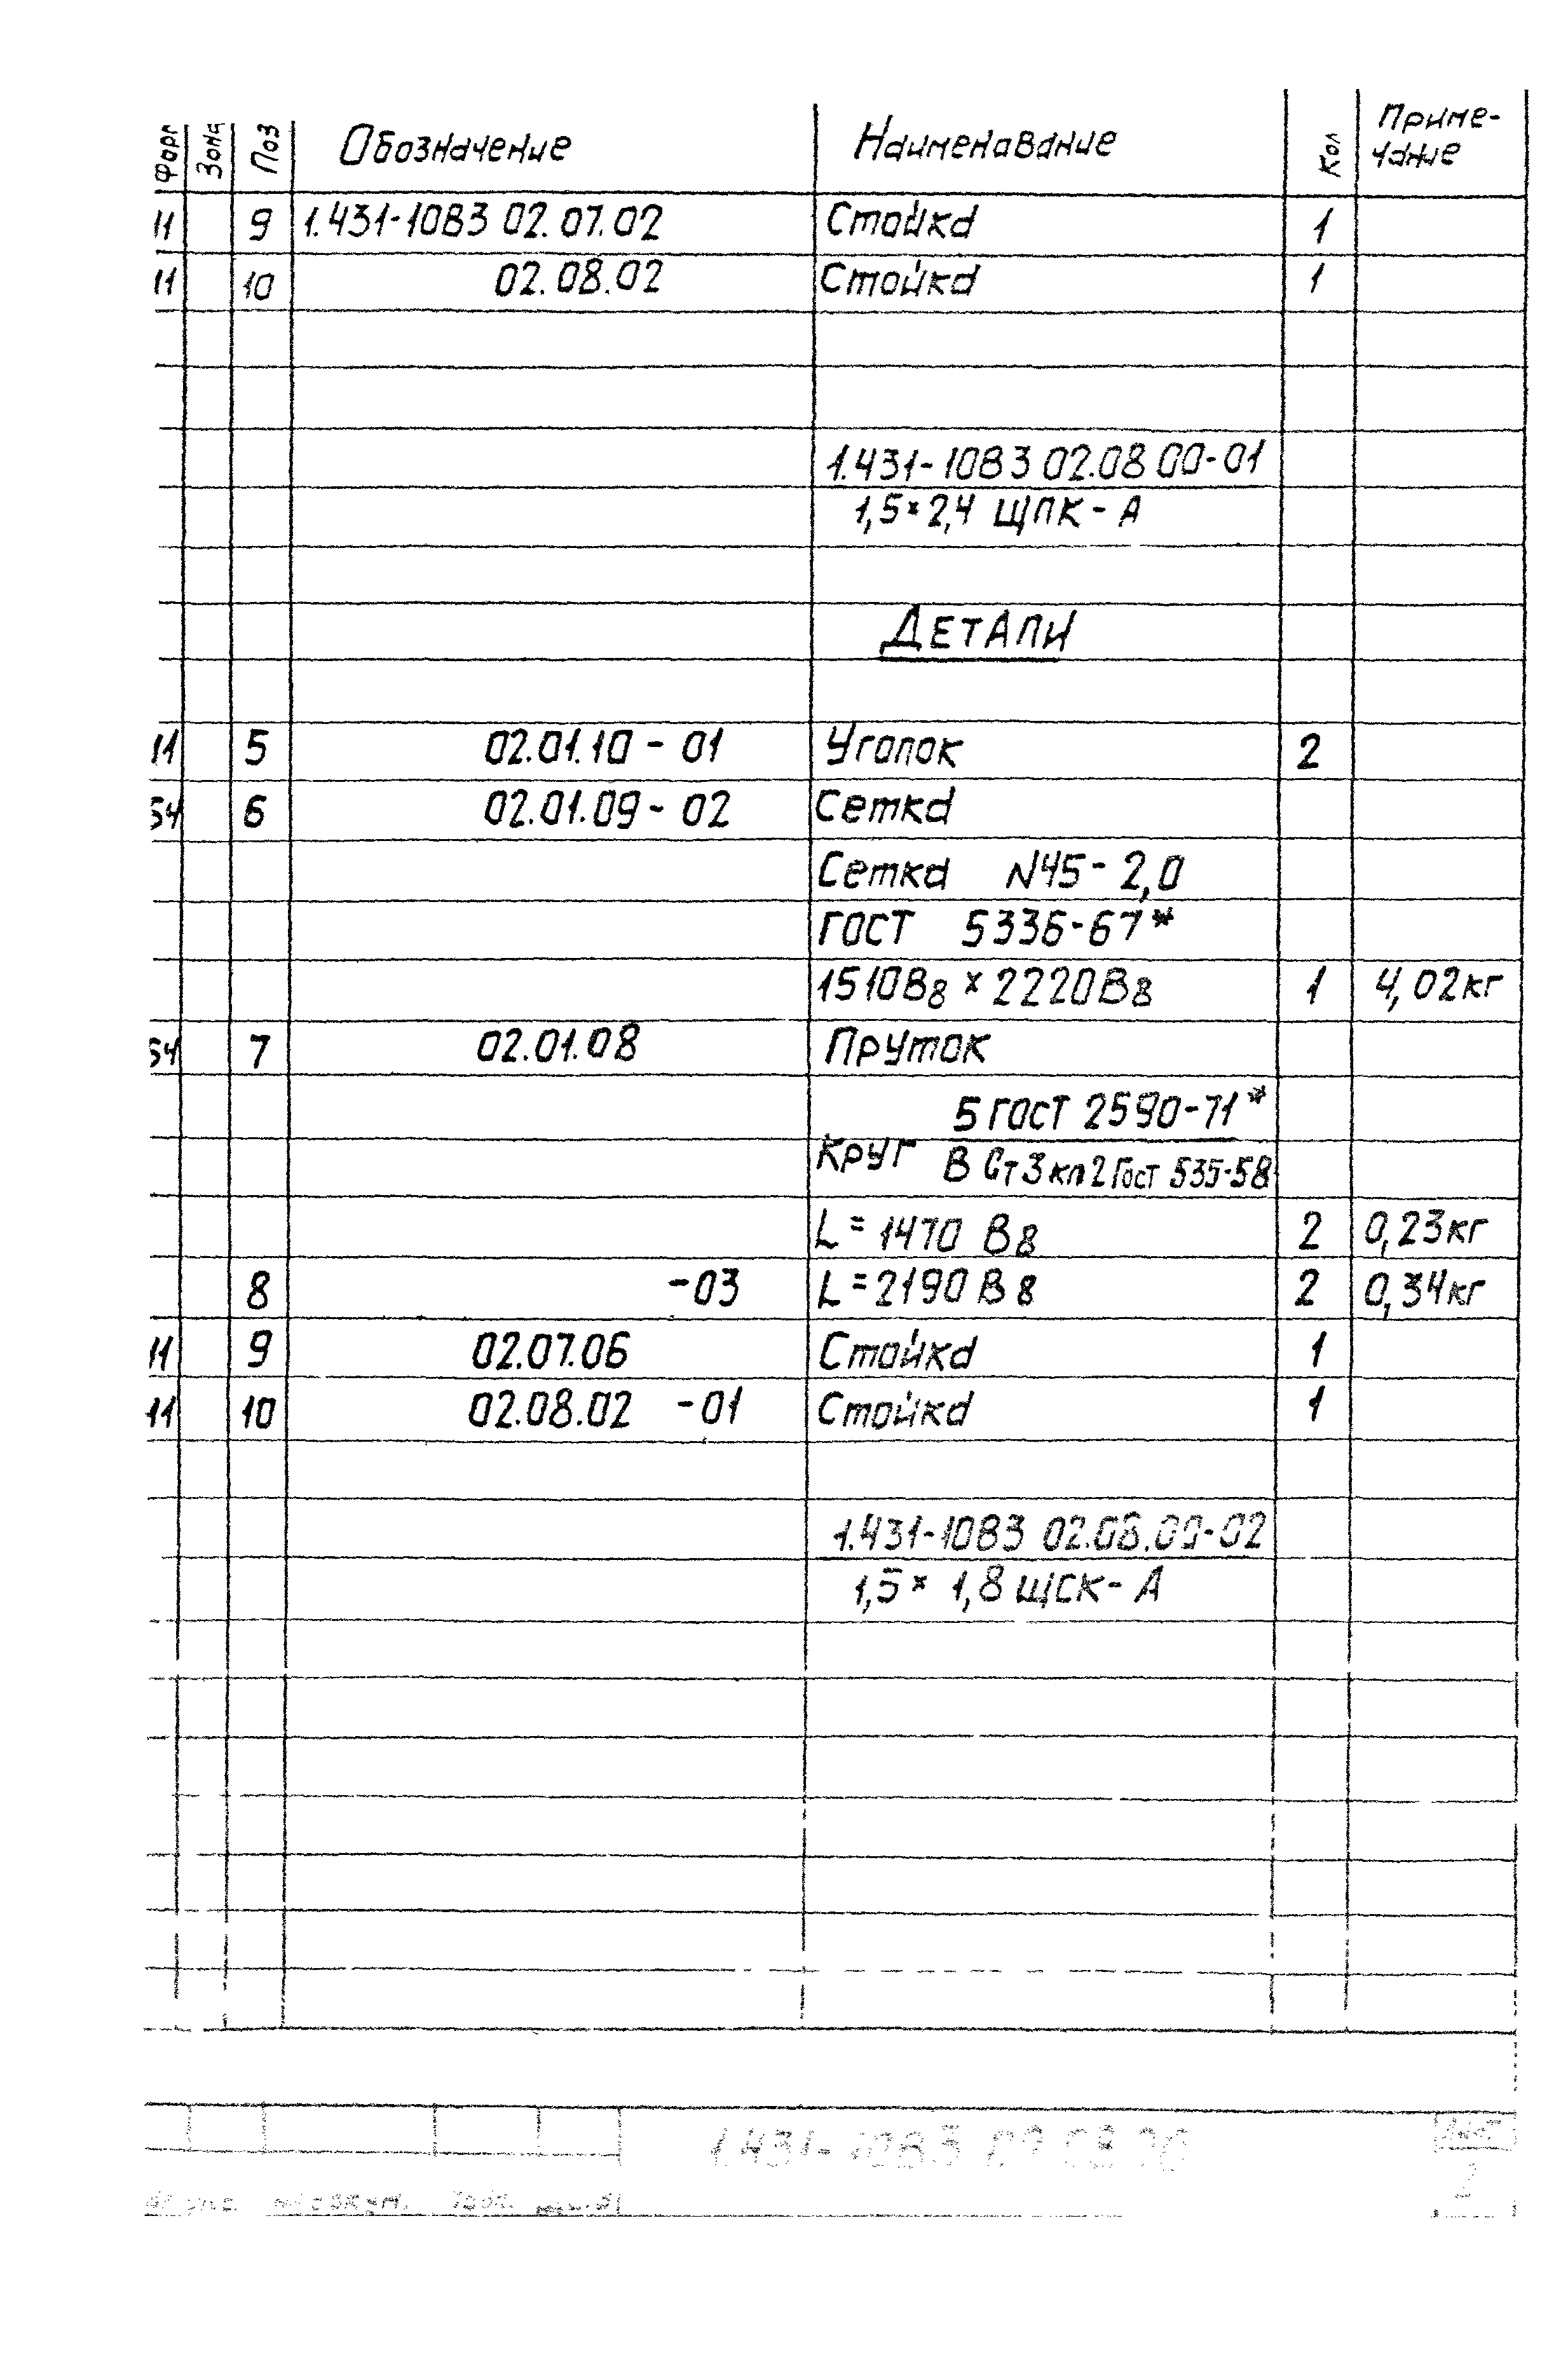 Форм Зона Поз Обозначение Наименование Кол Приме-
чание
11 9 1.431-10В3 02.07.02 Стойка 1
11 10 02.08.02 Стойка 1
1.431-10В3 02.08 00-01
1,5×2,4 ЩПК-А
ДЕТАЛИ
11 5 02.01.10-01 Уголок 2
Б4 6 02.01.09-02 Сетка
Сетка N45-2,0
ГОСТ 5336-67*
1510В8 × 2220В8 1 4,02кг
Б4 7 02.01.08 Пруток
5 ГОСТ 2590-71*
Круг В Ст3кп2 Гост 535-58
L=1470 В8 2 0,23кг
8 -03 L=2190 В8 2 0,34кг
11 9 02.07.06 Стойка 1
11 10 02.08.02 -01 Стойка 1
1.431-10В3 02.08.00-02
1,5× 1,8 ЩСК-А
1.431-10В3 02 08 00 Лист
2